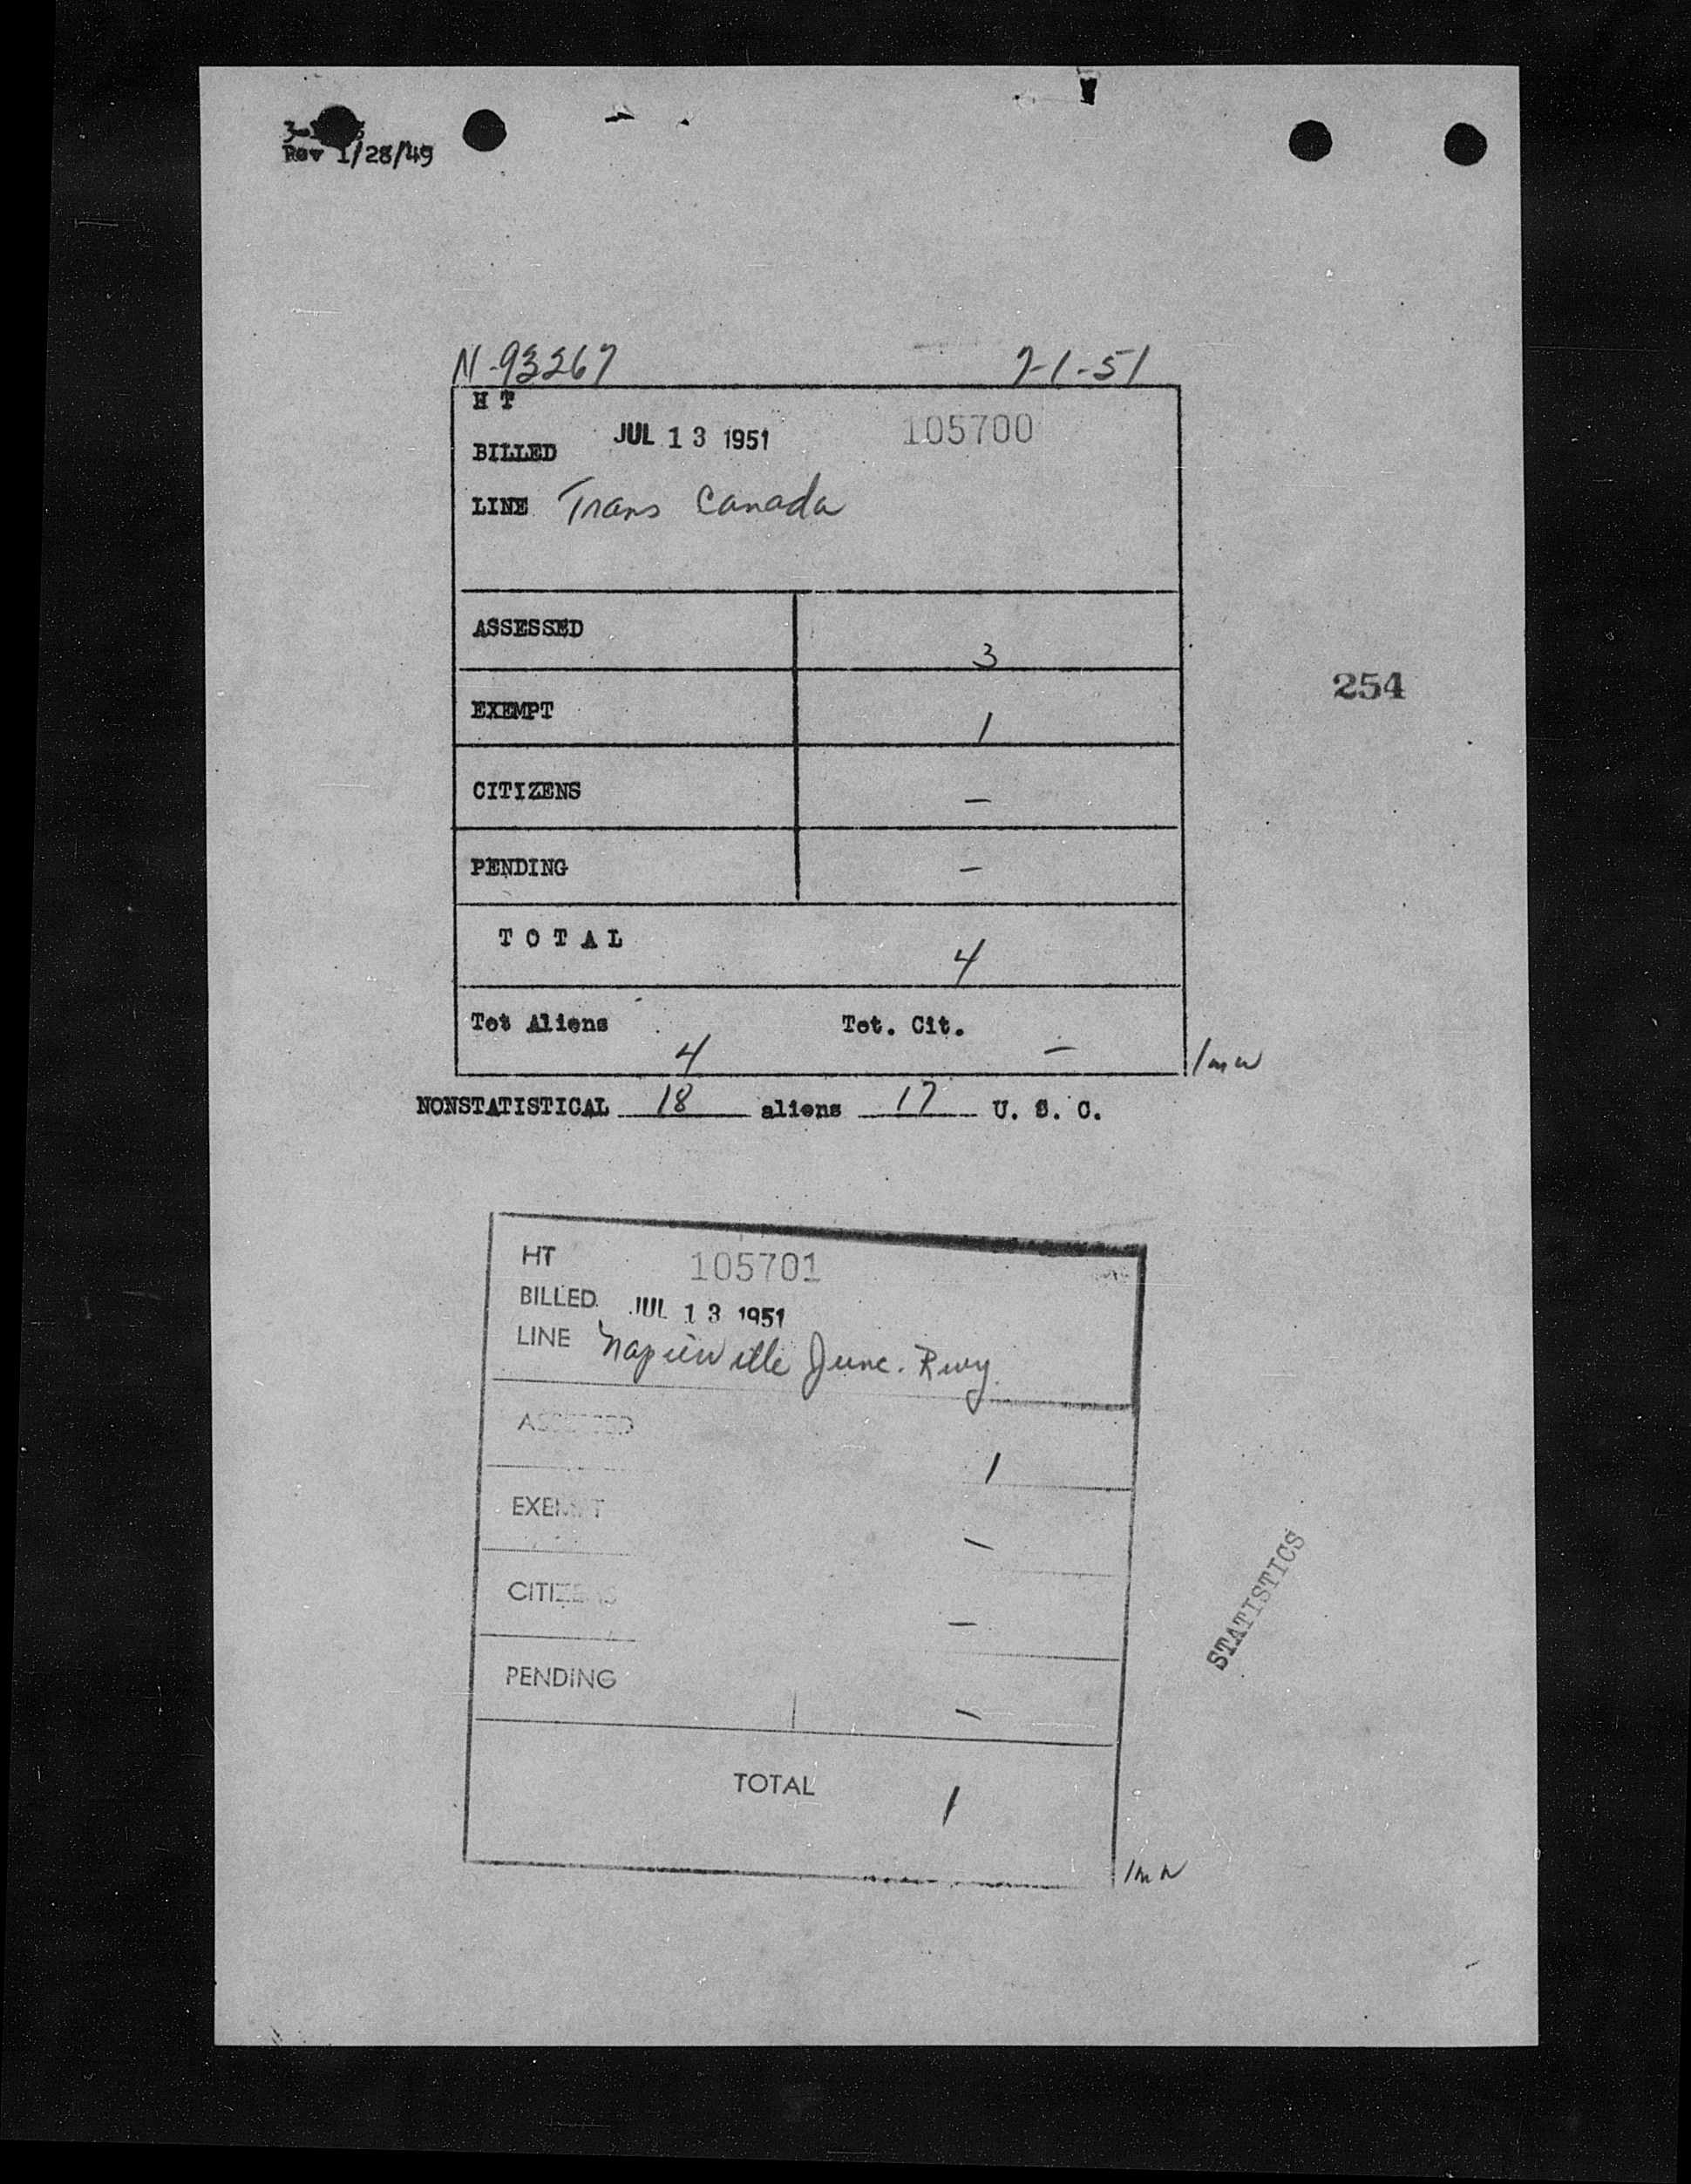 Rev 1/28/49
N-93267 7-1-51
H T
JUL 13 1951 105700
BILLED
LINE Trans Canada
ASSESSED 3
EXEMPT 1
CITIZENS –
PENDING –
T O T A L 4
Tot Aliens 4 Tot. Cit. –
NONSTATISTICAL 18 aliens 17 U. S. C.
254
HT 105701
BILLED JUL 13 1951
LINE Napierville Junc. Rwy.
ASSESSED 1
EXEMPT –
CITIZENS –
PENDING –
TOTAL 1
STATISTICS